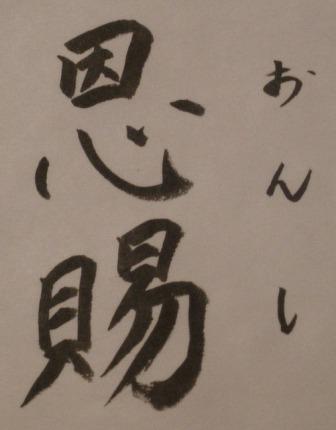 おんし
恩賜